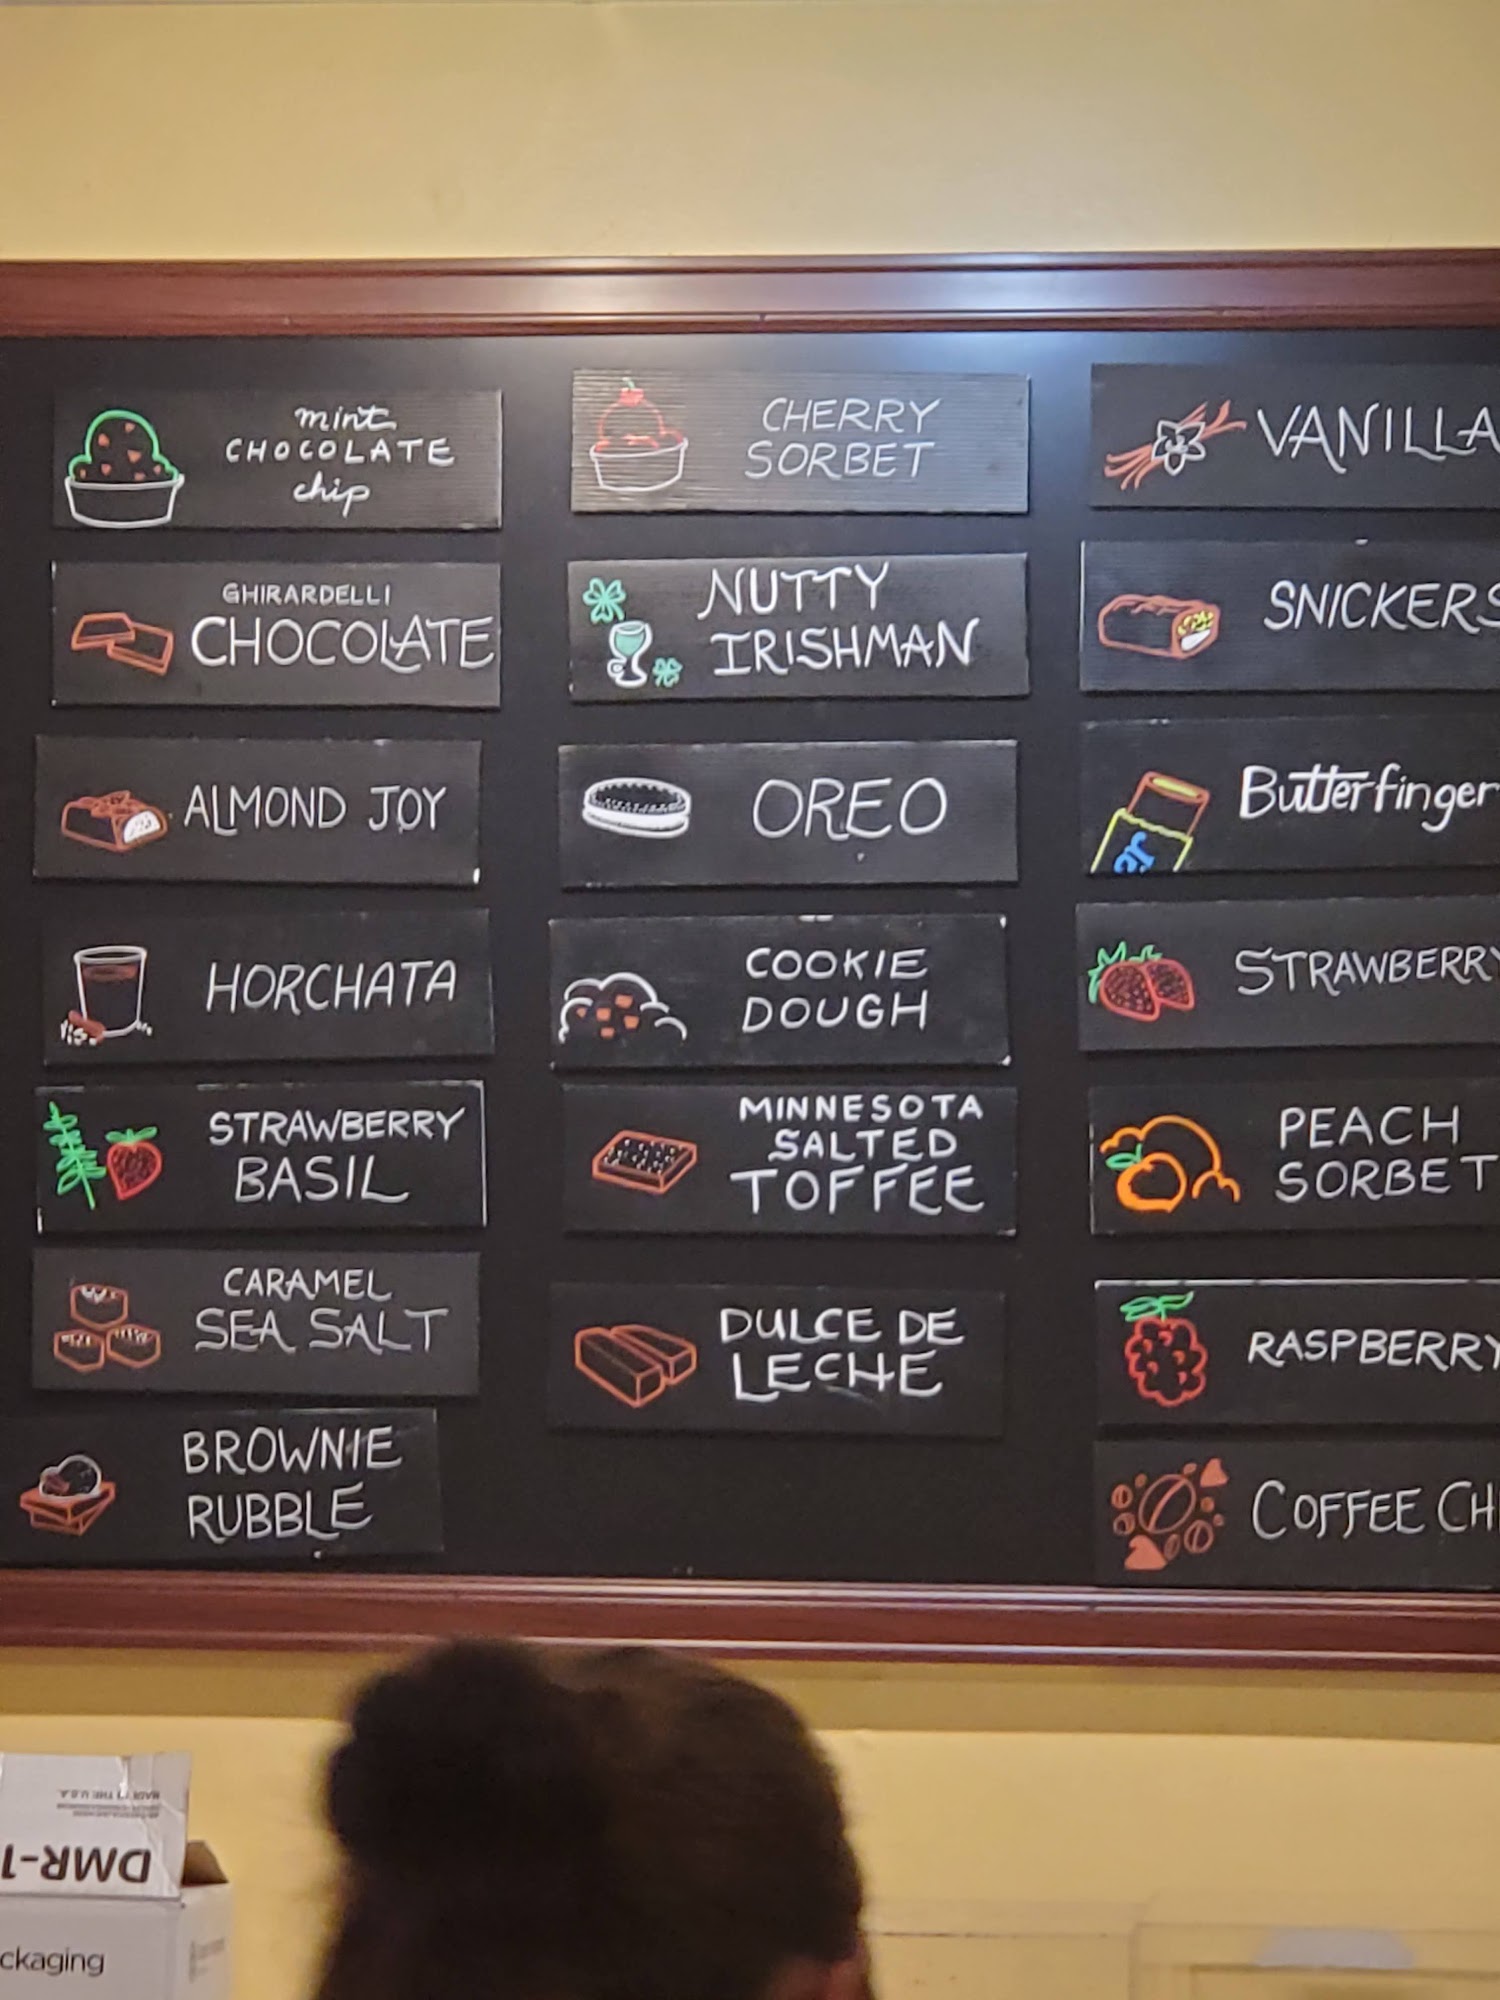 mint
CHOCOLATE
chip
GHIRARDELLI
CHOCOLATE
ALMOND JOY
HORCHATA
STRAWBERRY
BASIL
CARAMEL
SEA SALT
BROWNIE
RUBBLE
CHERRY
SORBET
NUTTY
IRISHMAN
OREO
COOKIE
DOUGH
MINNESOTA
SALTED
TOFFEE
DULCE DE
LECHE
VANILLA
SNICKERS
Butterfinger
STRAWBERRY
PEACH
SORBET
RASPBERRY
COFFEE CH
MADE IN THE U.S.A.
DMR-1
ckaging